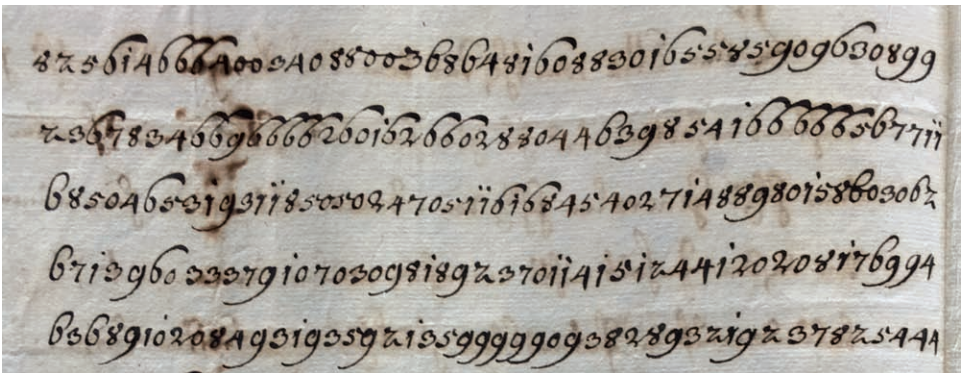 82561466640034088003686481608830165585909630899
2367834669666626016266028804463985416666656771i
685046531931185050247051161684540271488980158603062
6713960333791070309818923701141512441202081769 94
636891020849319359213599999093828932192378254 44